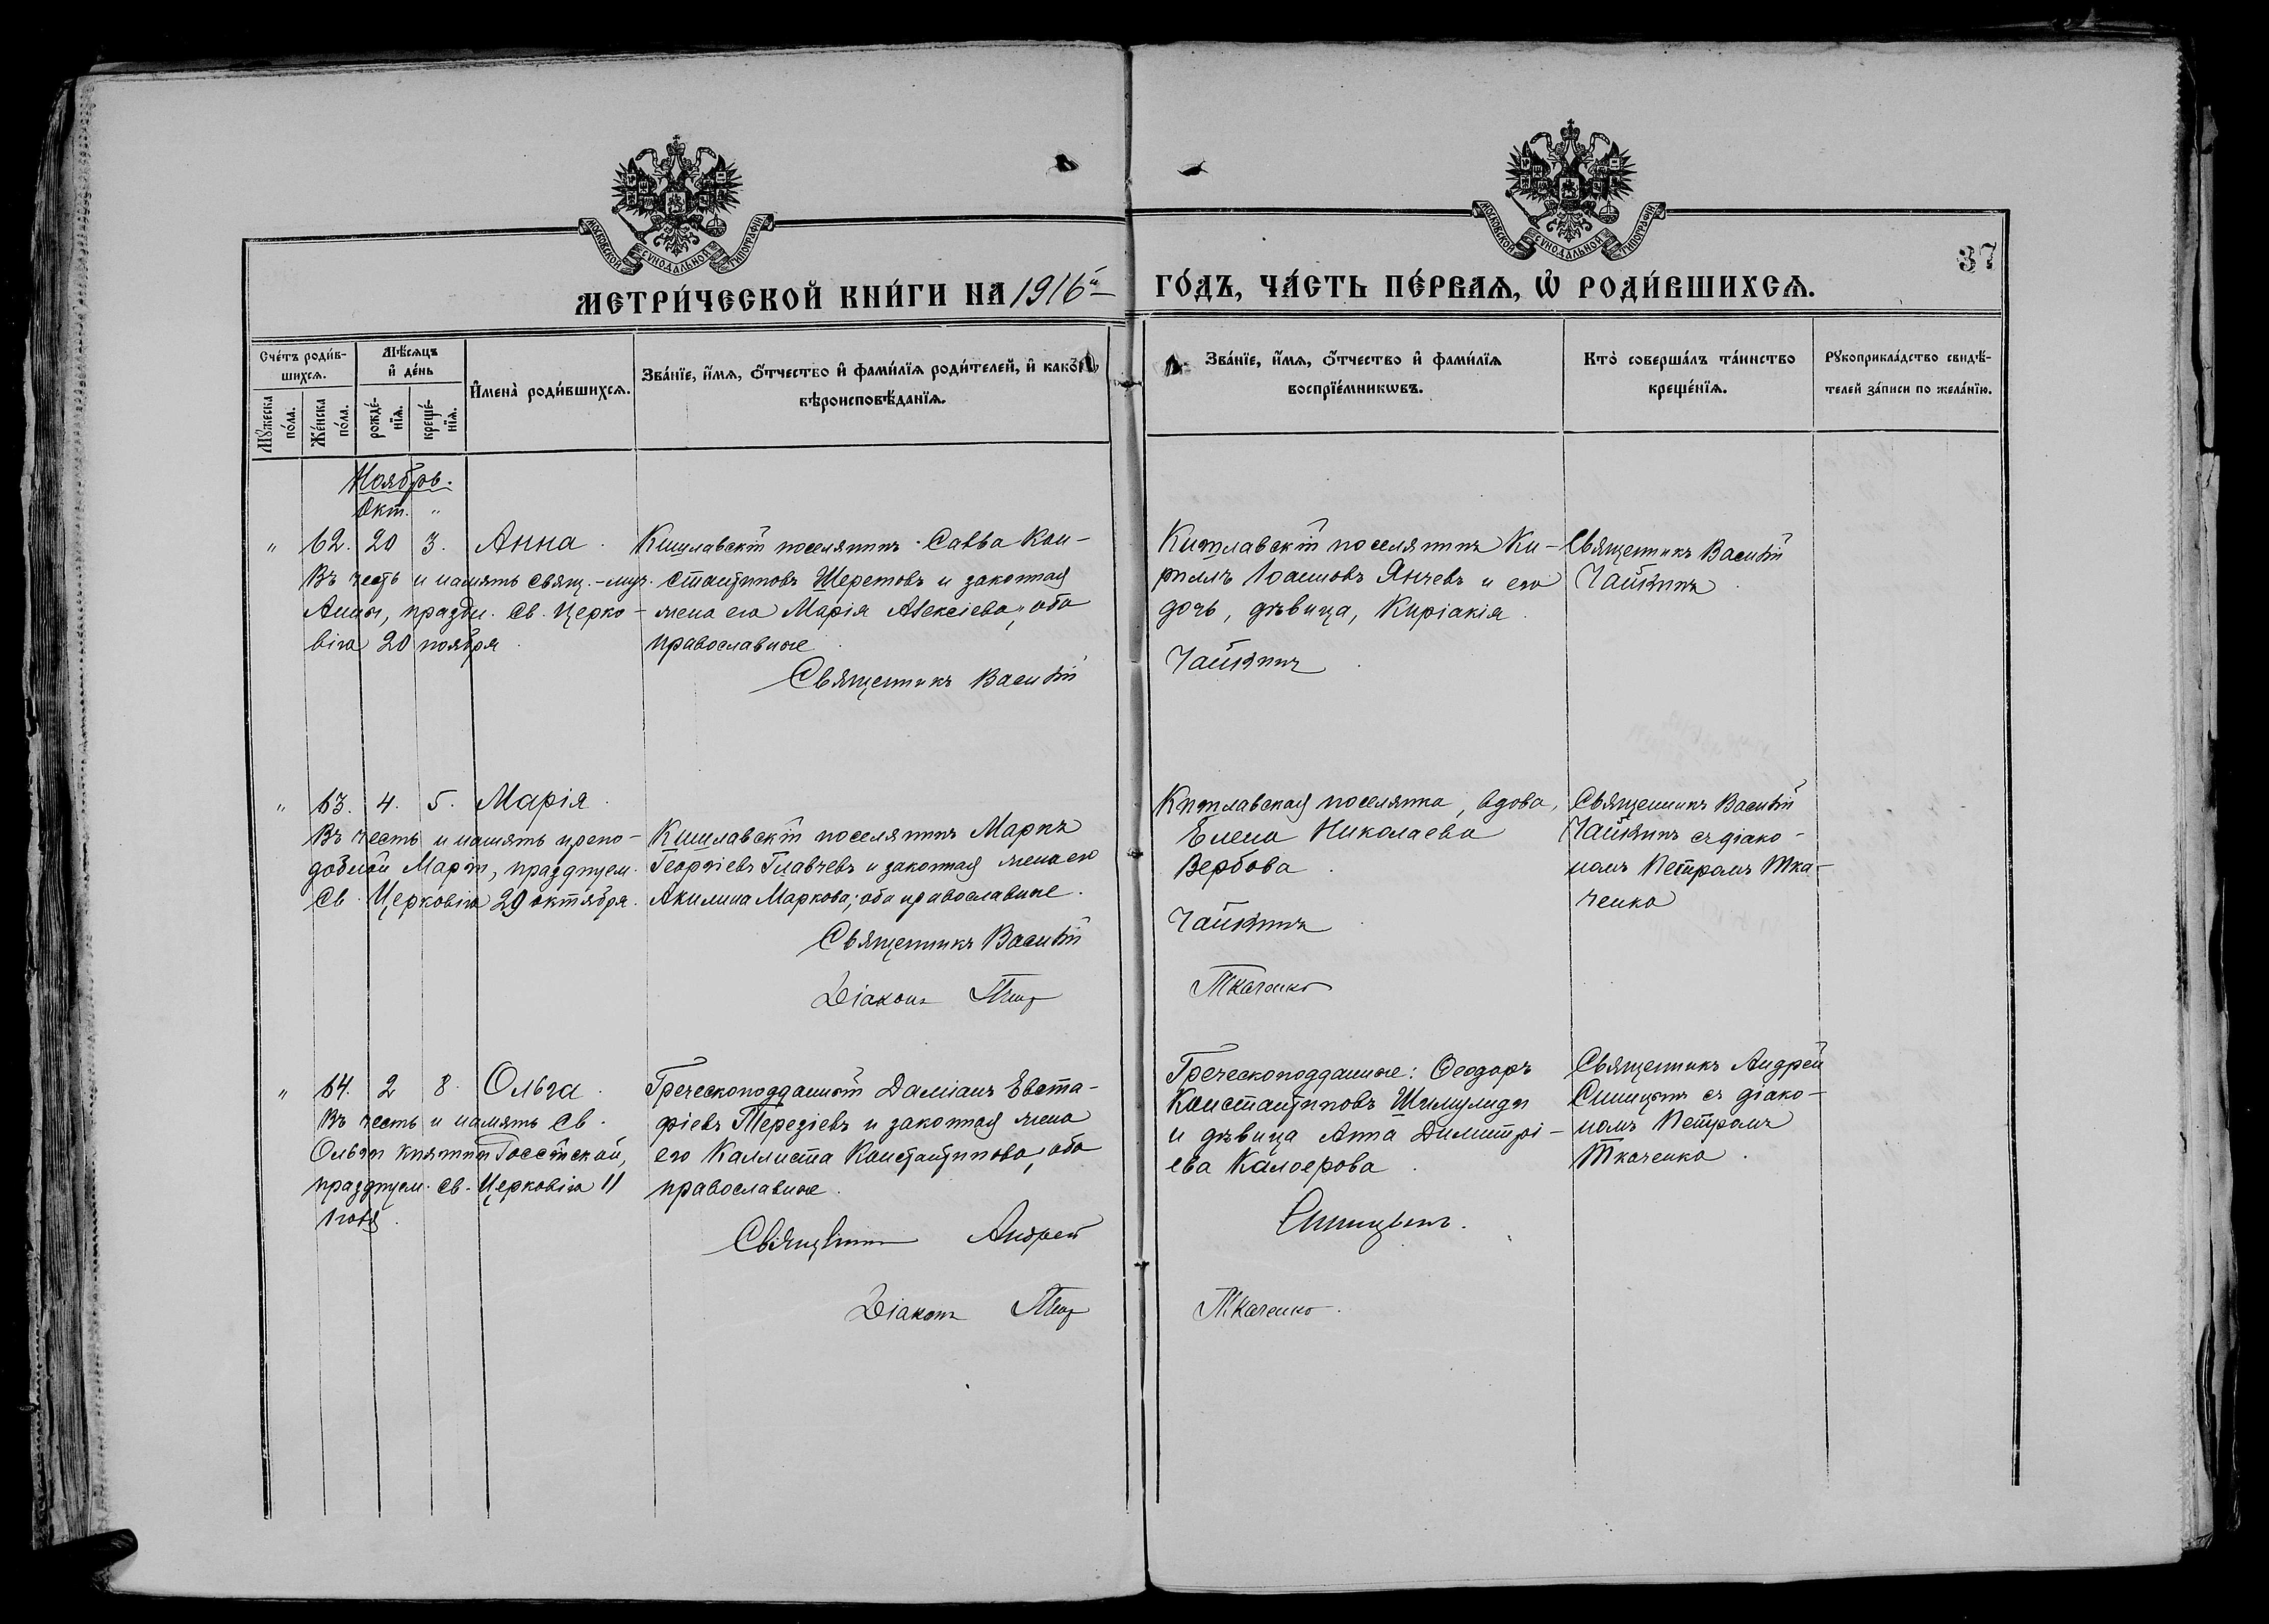 МОСКОВСКОЙ СѴНОДАЛЬНОЙ ТИПОГРАФІИ
МОСКОВСКОЙ СѴНОДАЛЬНОЙ ТИПОГРАФІИ
37
МЕТРИ́ЧЕСКОЙ КНИ́ГИ НА 1916й ГО́ДЪ, ЧА́СТЬ ПЕ́РВАѦ, Ѡ҆ РОДИ́ВШИХСѦ.
Сче́тъ роди́в-
шихсѧ.
Мꙋ́жеска
по́ла.
Же́нска
по́ла.
Мѣ́сѧцъ
и҆ де́нь
рожде́-
нїѧ.
креще́-
нїѧ.
И҆мена̀ роди́вшихсѧ.
Зва́нїе, и҆́мѧ, ѻ҆́тчество и҆ фами́лїѧ роди́телей, и҆ како́гѡ
вѣроисповѣ́данїѧ.
Зва́нїе, и҆́мѧ, ѻ҆́тчество и҆ фами́лїѧ
воспрїе́мникѡвъ.
Кто̀ соверша́лъ та́инство
креще́нїѧ.
Рꙋкоприкла́дство свидѣ́-
телей за́писи по жела́нїю.
Ноябрь.
Окт. "
" 62. 20 3. Анна.
Въ честь и память свящ.-муч.
Анны, праздн. Св. Церко-
вію 20 ноября.
Кишлавскій поселянинъ Савва Кон-
стантиновъ Шереметовъ и законная
жена его Марія Алексіева, оба
православные.
Священникъ Василій
Кишлавскій поселянинъ Ки-
риллъ Іоанновъ Янчевъ и его
дочь, дѣвица, Киріакія.
Чайкинъ.
Священникъ Василій
Чайкинъ.
" 63. 4. 5. Марія.
Въ честь и память препо-
добной Маріи, празднуем.
Св. Церковію 29 октября.
Кишлавскій поселянинъ Маркъ
Георгіевъ Главчевъ и законная жена его
Акилина Маркова; оба православные.
Священникъ Василій
Діаконъ Петр
Кишлавская поселянка, вдова,
Елена Николаева
Вербова.
Чайкинъ.
Ткаченко
Священникъ Василій
Чайкинъ съ діако-
номъ Петромъ Тка-
ченко
" 64. 2 8. Ольга.
Въ честь и память Св.
Ольги княгини Россійской,
празднуем. св. Церковію 11
Іюля.
Греческоподданный Даміанъ Евста-
фіевъ Терезіевъ и законная жена
его Каллиста Константинова, оба
православные.
Священникъ Андрей
Діаконъ Петр
Греческоподданные: Ѳеодоръ
Константиновъ Шимулиди
и дѣвица Анна Димитрі-
ева Калоерова.
Синицынъ.
Ткаченко.
Священникъ Андрей
Синицынъ съ діако-
номъ Петромъ
Ткаченко.